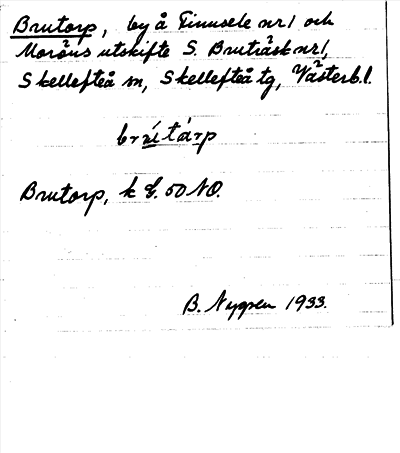 Brutorp, by å Finusele nr 1 och
Moröns utskifte S. Bruträsk nr 1,
Skellefteå sn, Skellefteå tg, Västerb.l.
Brutorp, k G. 50 NO.
B. Nygren 1933.